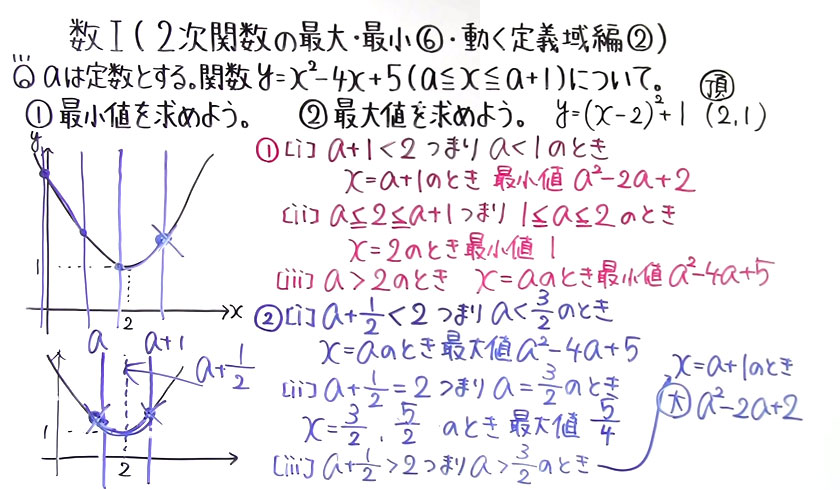 数I(2次関数の最大・最小⑥・動く定義域編②)
◎aは定数とする。関数y=x²-4x+5(a≦x≦a+1)について。
①最小値を求めよう。 ②最大値を求めよう。 y=(x-2)²+1 頂(2,1)
y
1
2
x
①[i] a+1<2つまりa<1のとき
x=a+1のとき 最小値 a²-2a+2
[ii] a≦2≦a+1つまり 1≦a≦2のとき
x=2のとき最小値 1
[iii] a>2のとき x=aのとき最小値a²-4a+5
②[i] a+1/2<2つまりa<3/2のとき
x=aのとき最大値a²-4a+5
[ii] a+1/2=2つまりa=3/2のとき
x=3/2, 5/2 のとき最大値 5/4
[iii] a+1/2>2つまりa>3/2のとき
x=a+1のとき
大 a²-2a+2
a a+1
a+1/2
1
2